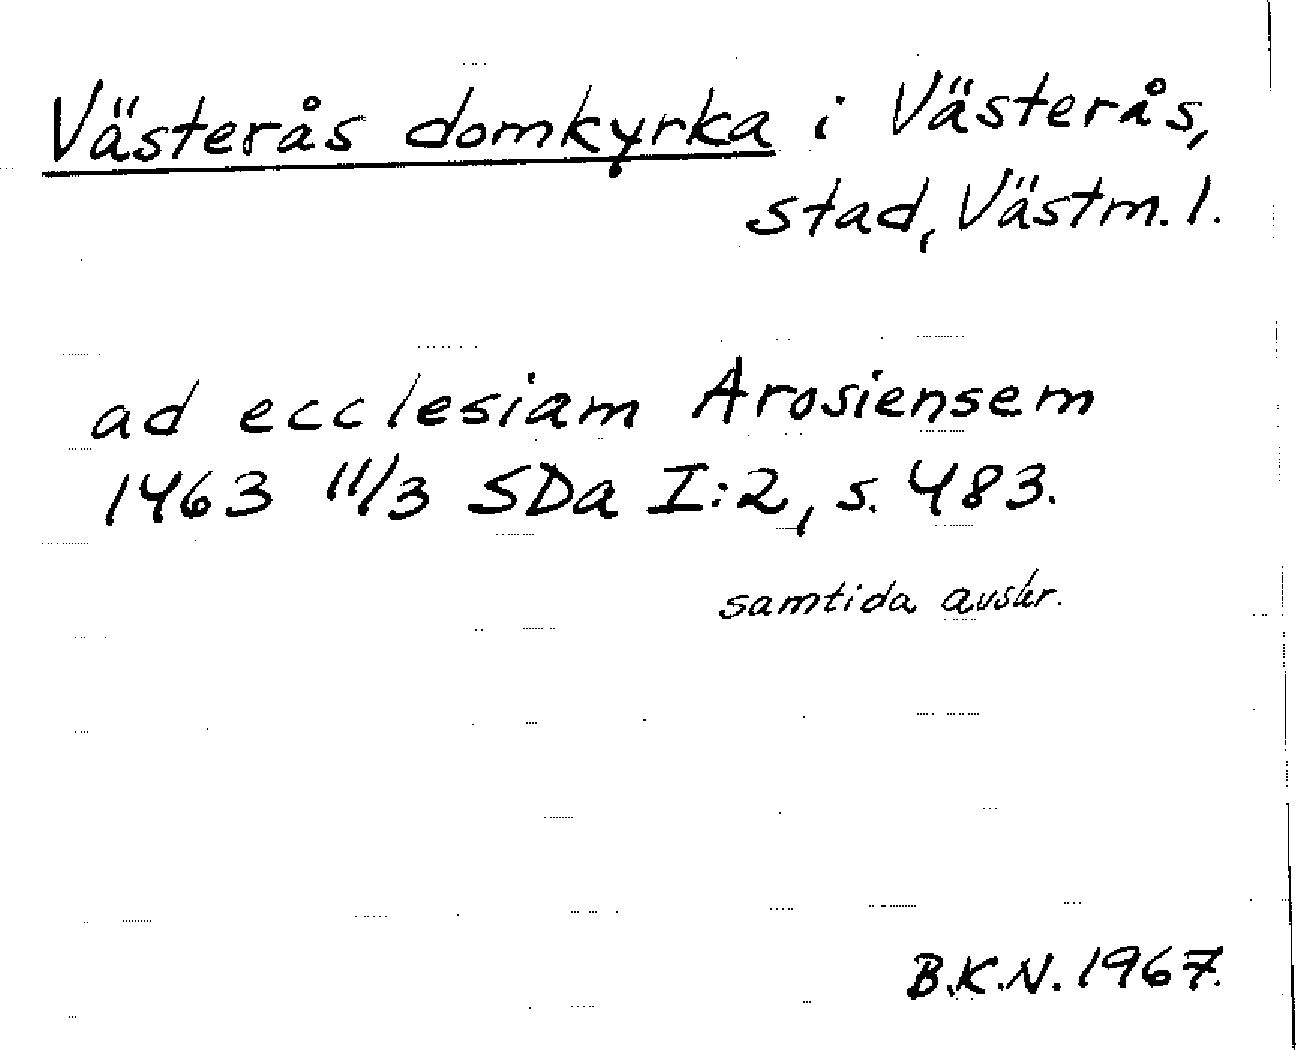 Västerås domkyrka i Västerås,
stad, Västm. l.
ad ecclesiam Arosiensem
1463 11/3 SDa I:2, s. 483.
samtida avskr.
B.K.N. 1967.